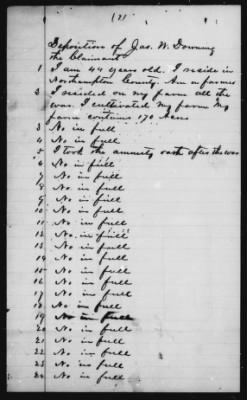 (1)
Deposition of Jas. W. Downing
the Claimant
1 I am 44 years old. I reside in
Northampton County. Am a farmer
2 I resided on my farm all the
war. I cultivated my farm My
farm contains 170 Acres
3 No in full
4 No in full
5 I took the amnesty oath after the war
6 No in full
7 No in full
8 No in full
9 No in full
10 No in full
11 No in full
12 No in full
13 No in full
14 No in full
15 No in full
16 No in full
17 No in full
18 No in full
19 No in full
20 No in full
21 No in full
22 No in full
23 No in full
24 No in full